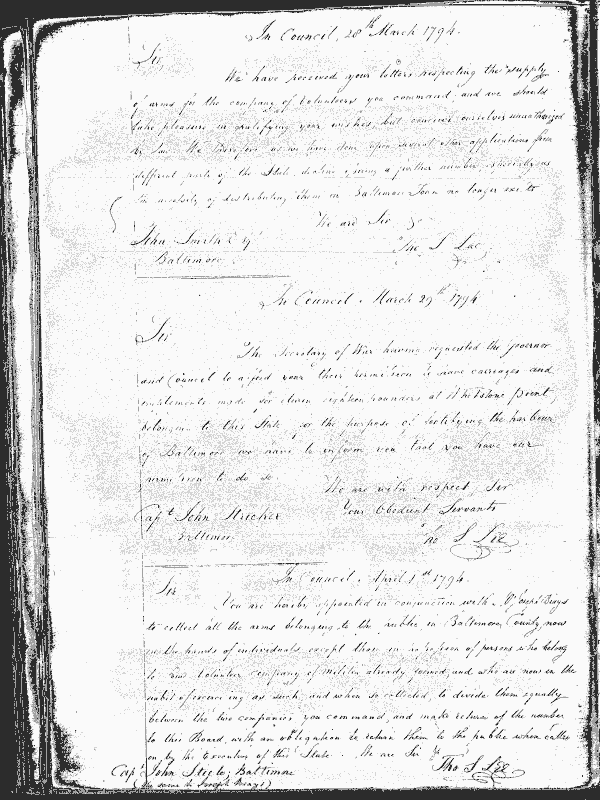 In Council, 28th March 1794.
Sir,
We have received your letters respecting the supply
of arms for the company of Volunteers you command, and we should
take pleasure in gratifying your wishes, but conceive ourselves unauthorized
by law. We therefore as we have done upon several other applications from
different parts of the State, decline giving a further number, especially as
the necessity of distributing them in Baltimore Town no longer exists
We are Sir
John Smith Esqr
Tho. S Lee
Baltimore
In Council, March 29th 1794
Sir
The Secretary of War having requested the governor
and Council to afford you their permission to have carriages and
implements made for eleven eighteen pounders at Whetstone Point,
belonging to this State, for the purpose of fortifying the harbour
of Baltimore we have to inform you that you have our
permission to do so
We are with respect, Sir
Capt John Stricker
Your Obedient Servants
Baltimore
Tho S Lee
In Council, April 1st 1794.
Sir
You are hereby appointed in conjunction with Joseph
to collect all the arms belonging to the public in Baltimore County now
in the hands of individuals except those in possession of persons who belong
to some Volunteer Company of Militia already formed, and who are now in the
habit of exercising as such, and when so collected, to divide them equally
between the two companies you command, and make return of the number
to this Board, with an obligation to return them to the public when called
on by the Executive of this State. We are Sir
Capt John Baltimore
Tho S Lee
(the same to Joseph